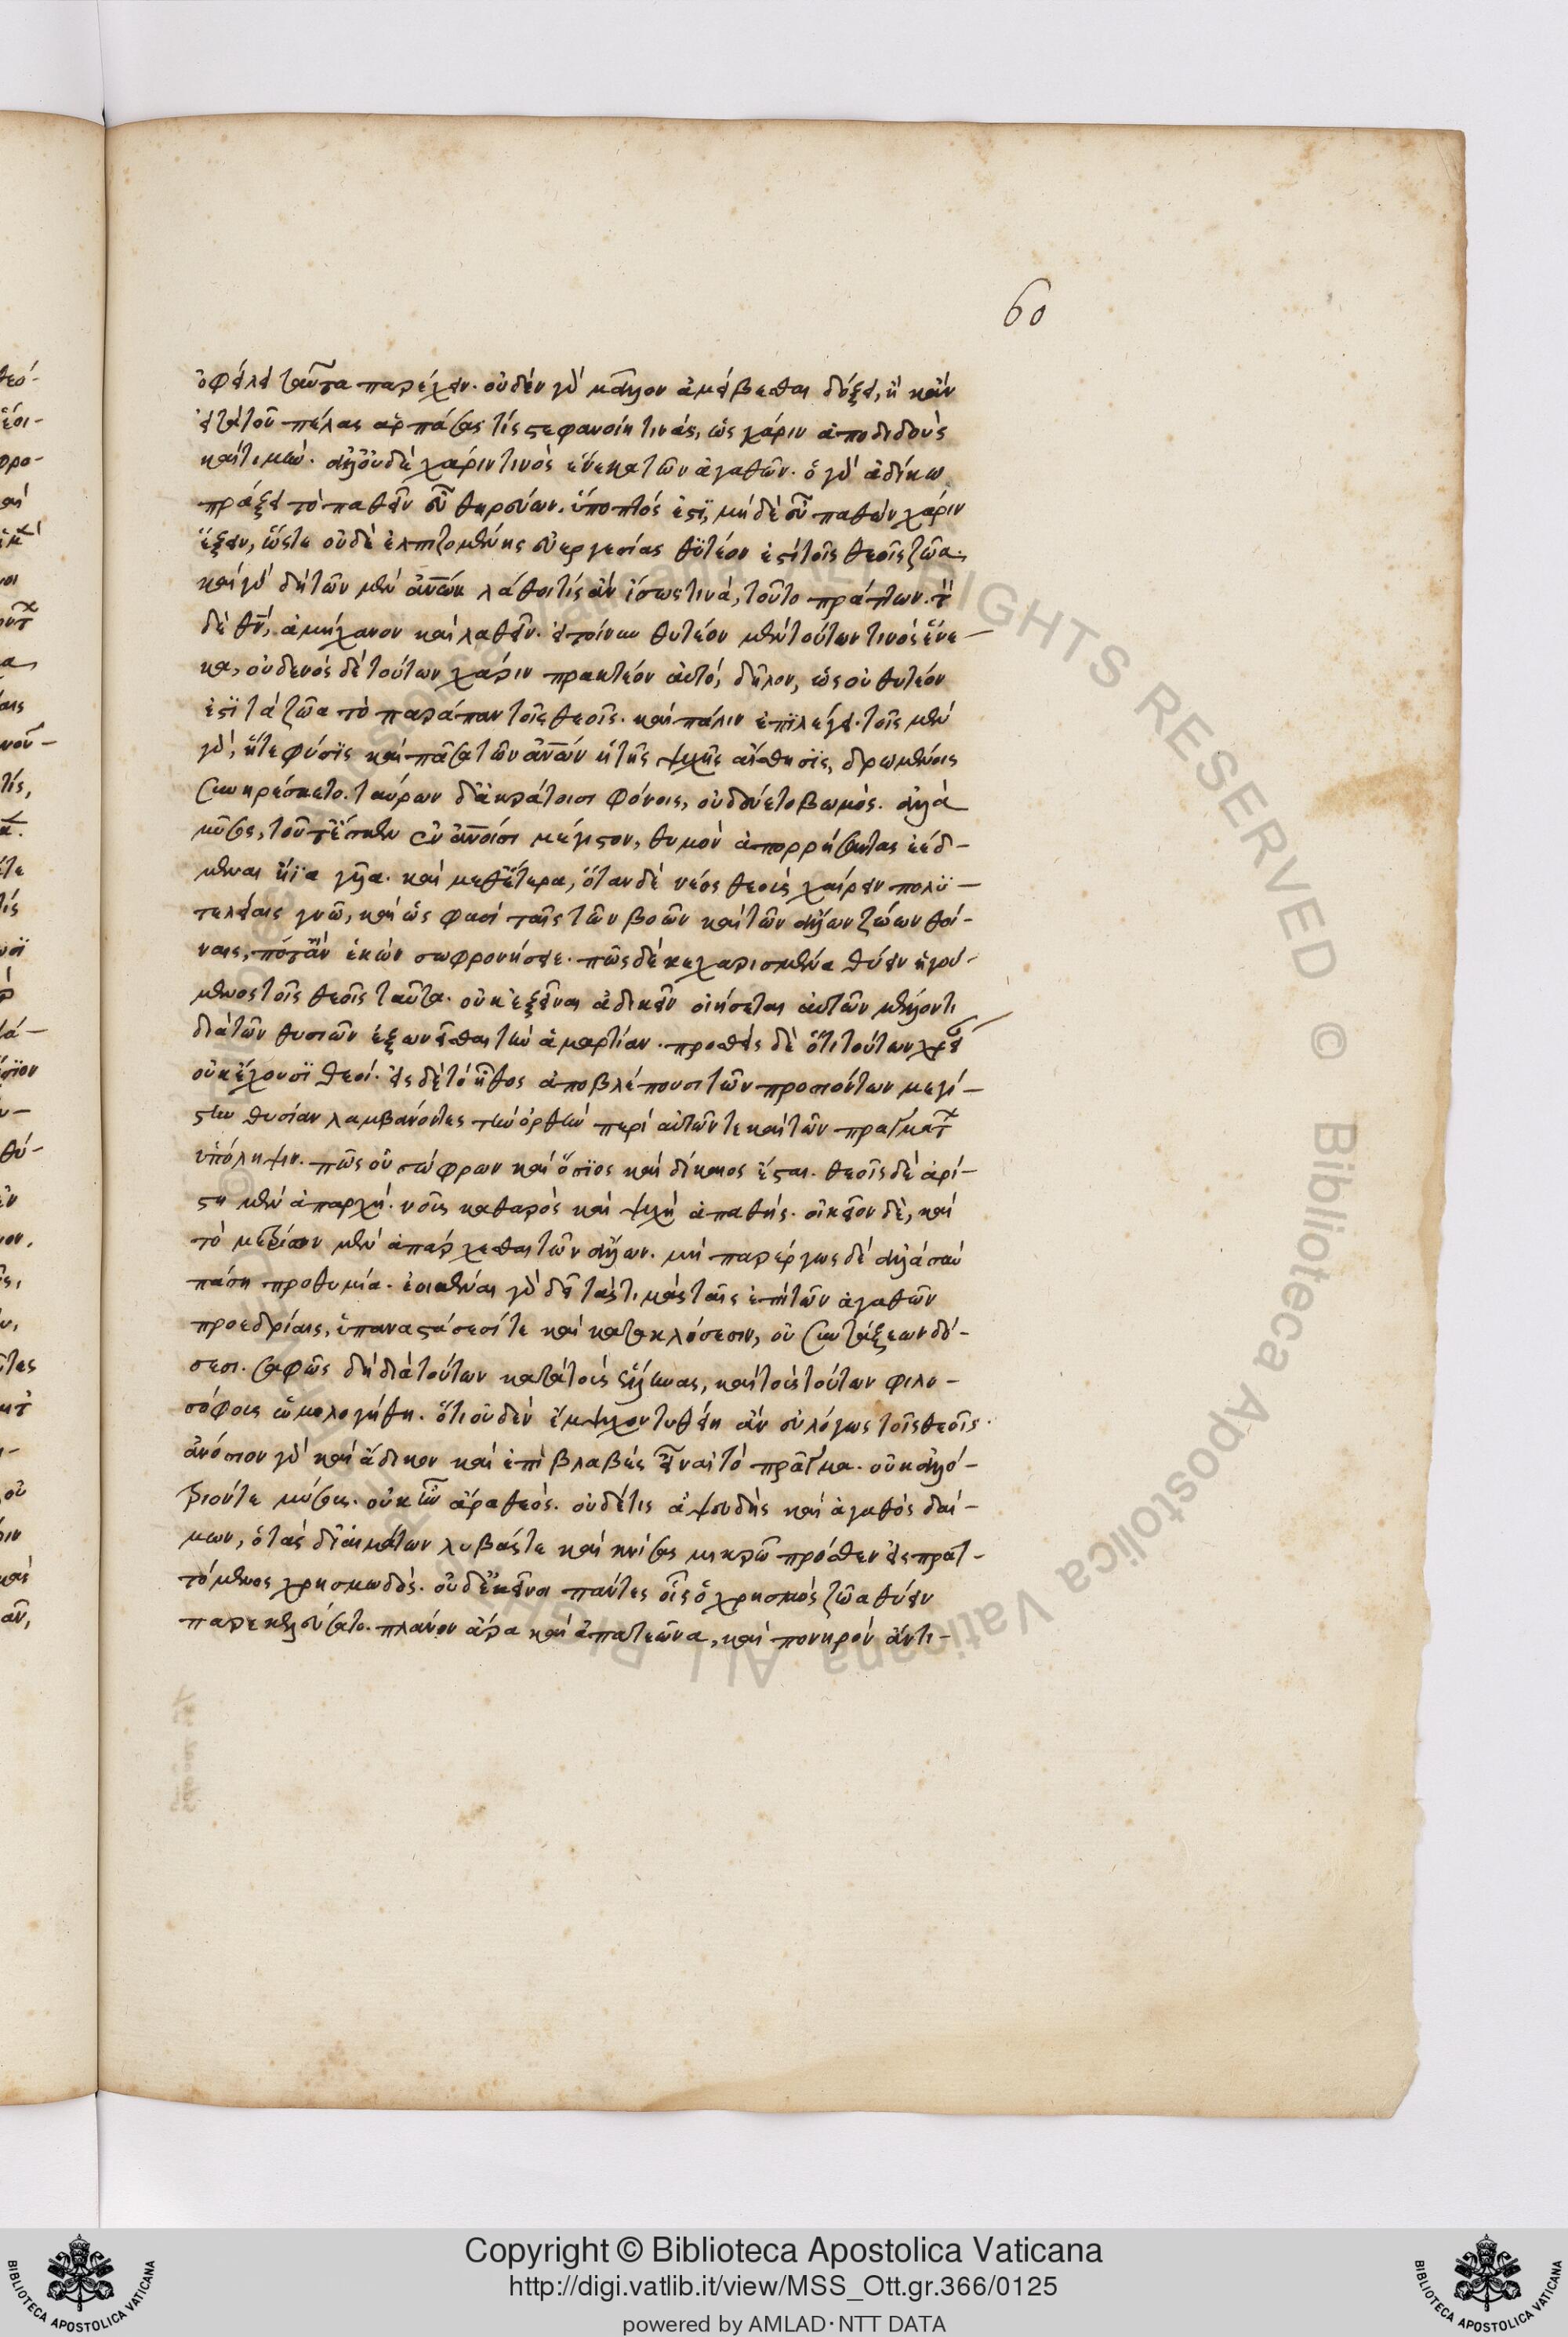 60
ὀφείλει ταῦτα παρέχειν. οὐδὲν γὰρ μᾶλλον ἀμείβεσθαι δόξει, ἢ κἂν
εἰ τὰ τοῦ πέλας ἁρπάσας τίς στεφανοίη τινάς, ὡς χάριν ἀποδιδοὺς
καὶ τιμήν. ἀλλ' οὐδὲ χάριν τινὸς ἕνεκα τῶν ἀγαθῶν. ὁ γὰρ ἀδίκῳ
πράξει τὸ παθεῖν εὖ θηρεύων, ὕποπτός ἐστι, μηδὲ εὖ παθὼν χάριν
ἕξειν, ὥστε οὐδὲ ἐλπιζομένης εὐεργεσίας θυτέον ἐστὶ τοῖς θεοῖς ζῶα.
καὶ γὰρ δὴ τῶν μὲν ἀνων λάθοι τίς ἂν ἴσως τινά, τοῦτο πράττων. τ
δὲ θν, ἀμήχανον καὶ λαθεῖν. εἰ τοίνυν θυτέον μὲν τούτων τινὸς ἕνε-
κα, οὐδενὸς δὲ τούτων χάριν πρακτέον αὐτό, δῆλον, ὡς οὐ θυτέον
ἐστὶ τὰ ζῶα τὸ παράπαν τοῖς θεοῖς. καὶ πάλιν ἐπιλέγει. τοῖς μὲν
γὰρ, ἥτε φύσις καὶ πᾶσα τῶν ἀνων ἡ τῆς ψυχῆς αἴσθησις, δρωμένοις
συνηρέσκετο. ταύρων δ' ἀκράτοισι φόνοις, οὐ δεύετο βωμός. ἀλλὰ
μῦσος, τοῦτ' ἔσκεν ἐν ἀνοισι μέγιστον, θυμὸν ἀπορρήσαντας ἐέδ-
μεναι ἤϊα γυῖα. καὶ μεθ' ἕτερα, ὅταν δὲ νέος θεοὺς χαίρειν πολυ-
τελείαις γνῶ, καὶ ὥς φασι ταῖς τῶν βοῶν καὶ τῶν ἄλλων ζώων θοί-
ναις, πότ' ἂν ἑκὼν σωφρονήσειε. πῶς δὲ κεχαρισμένα θύειν ἡγού-
μενος τοῖς θεοῖς ταῦτα. οὐκ ἐξεῖναι ἀδικεῖν οἰήσεται αὐτῶν μέλλοντι
διὰ τῶν θυσιῶν ἐξωνεῖσθαι τὴν ἁμαρτίαν. προσθεὶς δὲ ὅτι τούτων χρεί
οὐκ ἔχουσι θεοί. εἰς δὲ τὸ ἦθος ἀποβλέπουσι τῶν προσιόντων μεγί-
στην θυσίαν λαμβάνοντες τὴν ὀρθὴν περὶ αὐτῶν τε καὶ τῶν πραγματ
ὑπόληψιν. πῶς οὐ σώφρων καὶ ὅσιος καὶ δίκαιος ἔσται. θεοῖς δὲ ἀρί-
στη μὲν ἀπαρχή. νοῦς καθαρὸς καὶ ψυχὴ ἀπαθής. οἰκεῖον δὲ, καὶ
τὸ μετρίων μὲν ἀπάρχεσθαι τῶν ἄλλων. μὴ παρέργως δὲ ἀλλὰ σὺν
πάσῃ προθυμία. ἐοικέναι γὰρ δεῖ τὰς τιμὰς ταῖς ἐπὶ τῶν ἀγαθῶν
προεδρίαις, ὑπαναστάσεσί τε καὶ κατακλίσεσιν, οὐ συντάξεων δό-
σεσι. σαφῶς δὴ διὰ τούτων κατὰ τοὺς ἕλληνας, καὶ τοὺς τούτων φιλο-
σόφους ὡμολογήθη. ὅτι οὐδὲν ἔμψυχον τυθείη ἂν εὐλόγως τοῖς θεοῖς.
ἀνόσιον γὰρ καὶ ἄδικον καὶ ἐπιβλαβὲς εἶναι τὸ πρᾶγμα. οὐκ ἀλλό-
τριόν τε μύσους. οὐκ ἦν ἄρα θεός. οὐδέ τις ἀψευδὴς καὶ ἀγαθὸς δαί-
μων, ὁ τὰς δι' αἱμάτων λυβάς τε καὶ κνίσας μικρῶ πρόσθεν εἰσπρατ-
τόμενος χρησμωδός. οὐδ' ἐκεῖνοι πάντες οἷς ὁ χρησμὸς ζῶα θύειν
παρεκελεύσατο. πλάνον ἄρα καὶ ἀπατεῶνα, καὶ πονηρὸν ἀντι-
Copyright © Biblioteca Apostolica Vaticana
http://digi.vatlib.it/view/MSS_Ott.gr.366/0125
powered by AMLAD·NTT DATA